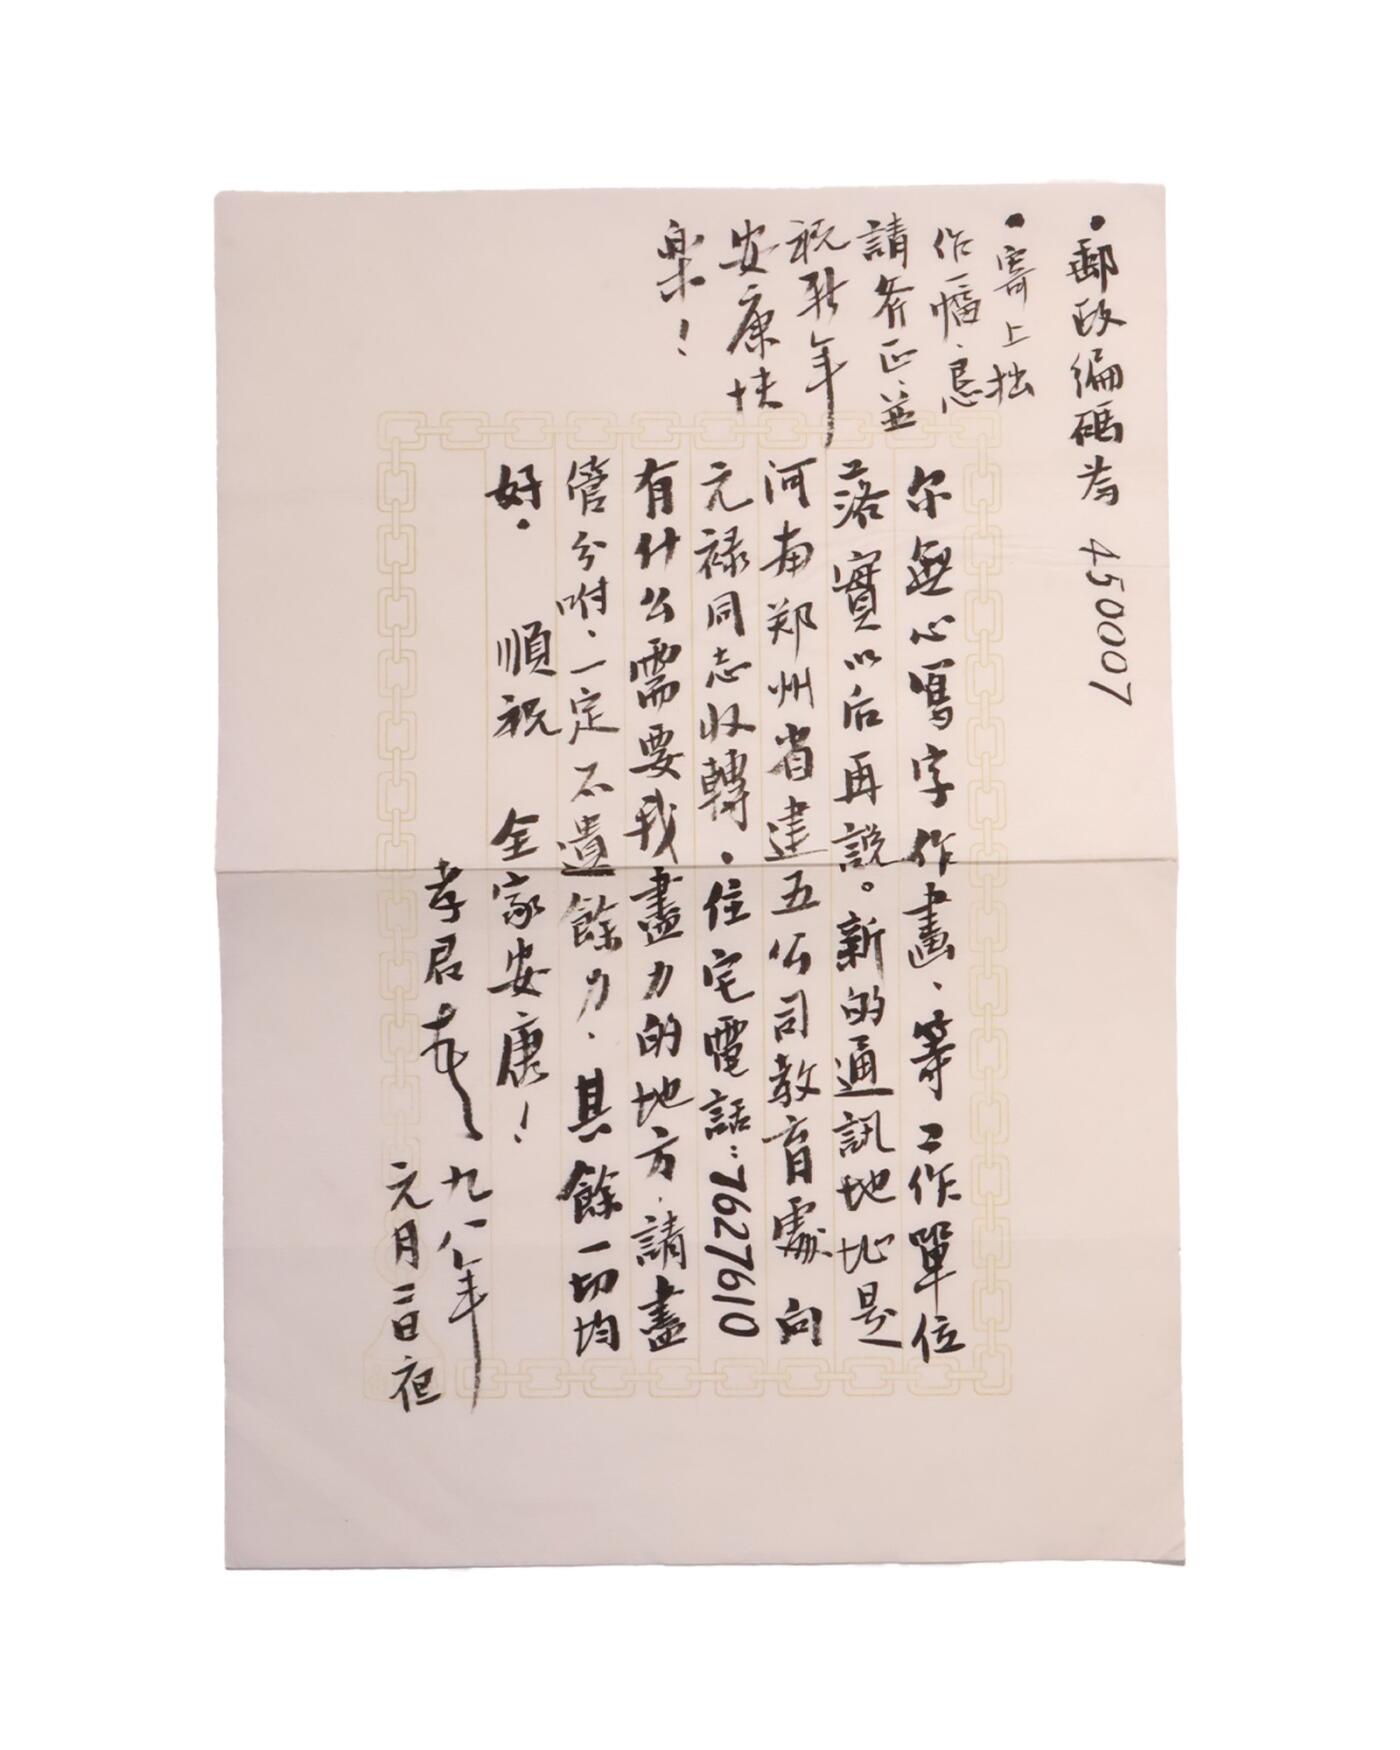 •郵政編碼為 450007
•寄上拙
作一幅、忌
請斧正並
祝新年
安康快
樂！
亦無心寫字作畫、等工作單位
落實以后再説。新的通訊地址是
河南郑州省建五公司教育處 向
元禄同志收轉.住宅電話:7627610
有什么需要我盡力的地方.請盡
管分咐、一定不遺餘力、其餘一切均
好. 順祝 全家安康！
孝君
九八年
元月二日夜